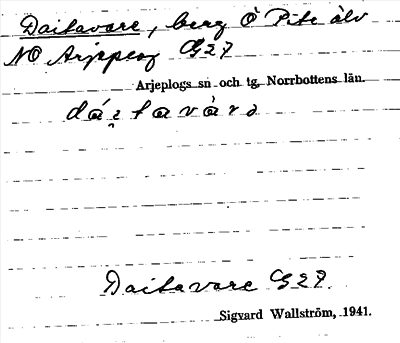 Daitavare, berg Ö Pite älv
NO Arjeplog G27
Arjeplogs sn och tg, Norrbottens län.
dái̯tavàrə
Daitavare G27.
Sigvard Wallström, 1941.